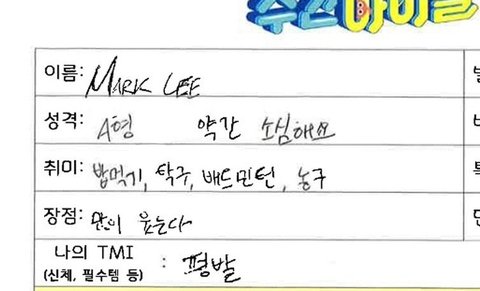 주간아이돌
이름: MARK LEE
성격: A형 약간 소심해요
취미: 밥먹기, 탁구, 배드민턴, 농구
장점: 많이 웃는다
나의 TMI
(신체, 필수템 등) : 평발